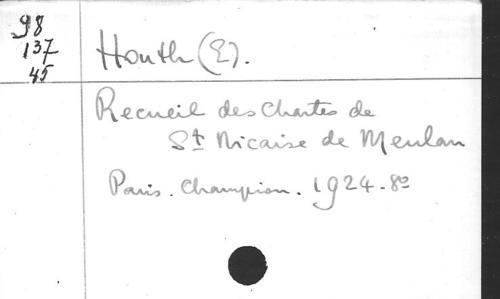 98
137
45
Houth (E).
Recueil des Chartes de
St Nicaise de Meulan
Paris. Champion. 1924-8º